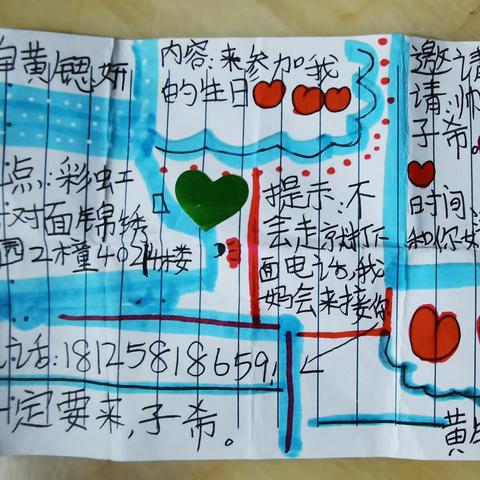 黄思妍
内容:来参加我
的生日
邀请
请:帅
子希。
点:彩虹
对面锦绣
园2橦402 楼
提示:不
会走 打下
面电话,我
妈会来接你
时间:
和你
话:18125818659!
定要来,子希。
黄